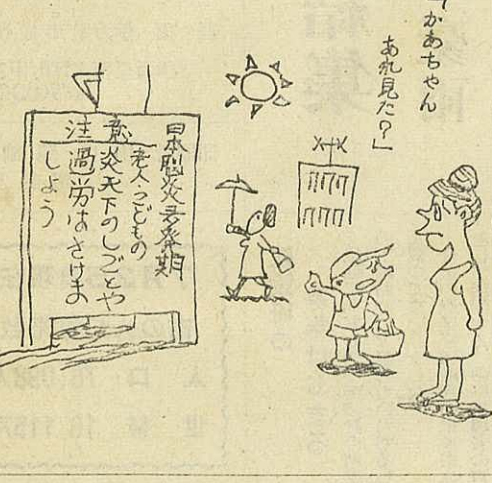 「かあちゃん
あれ見た？」
注意
日本脳炎多発期
老人・こどもの
炎天下のしごとや
過労はさけま
しよう